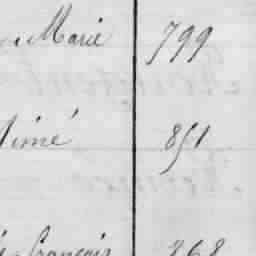 Marie 799
Aimé 851
françois 268